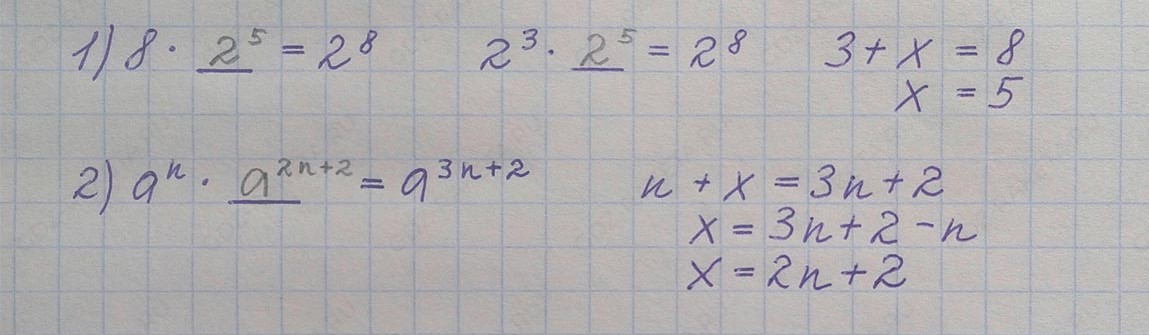 1) 8 · 2⁵ = 2⁸ 2³ · 2⁵ = 2⁸ 3 + x = 8
x = 5
2) aⁿ · a²ⁿ⁺² = a³ⁿ⁺² n + x = 3n + 2
x = 3n + 2 - n
x = 2n + 2